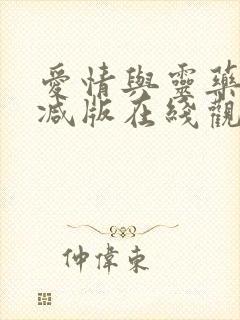 愛情與靈藥
减版在綫觀
仲偉東